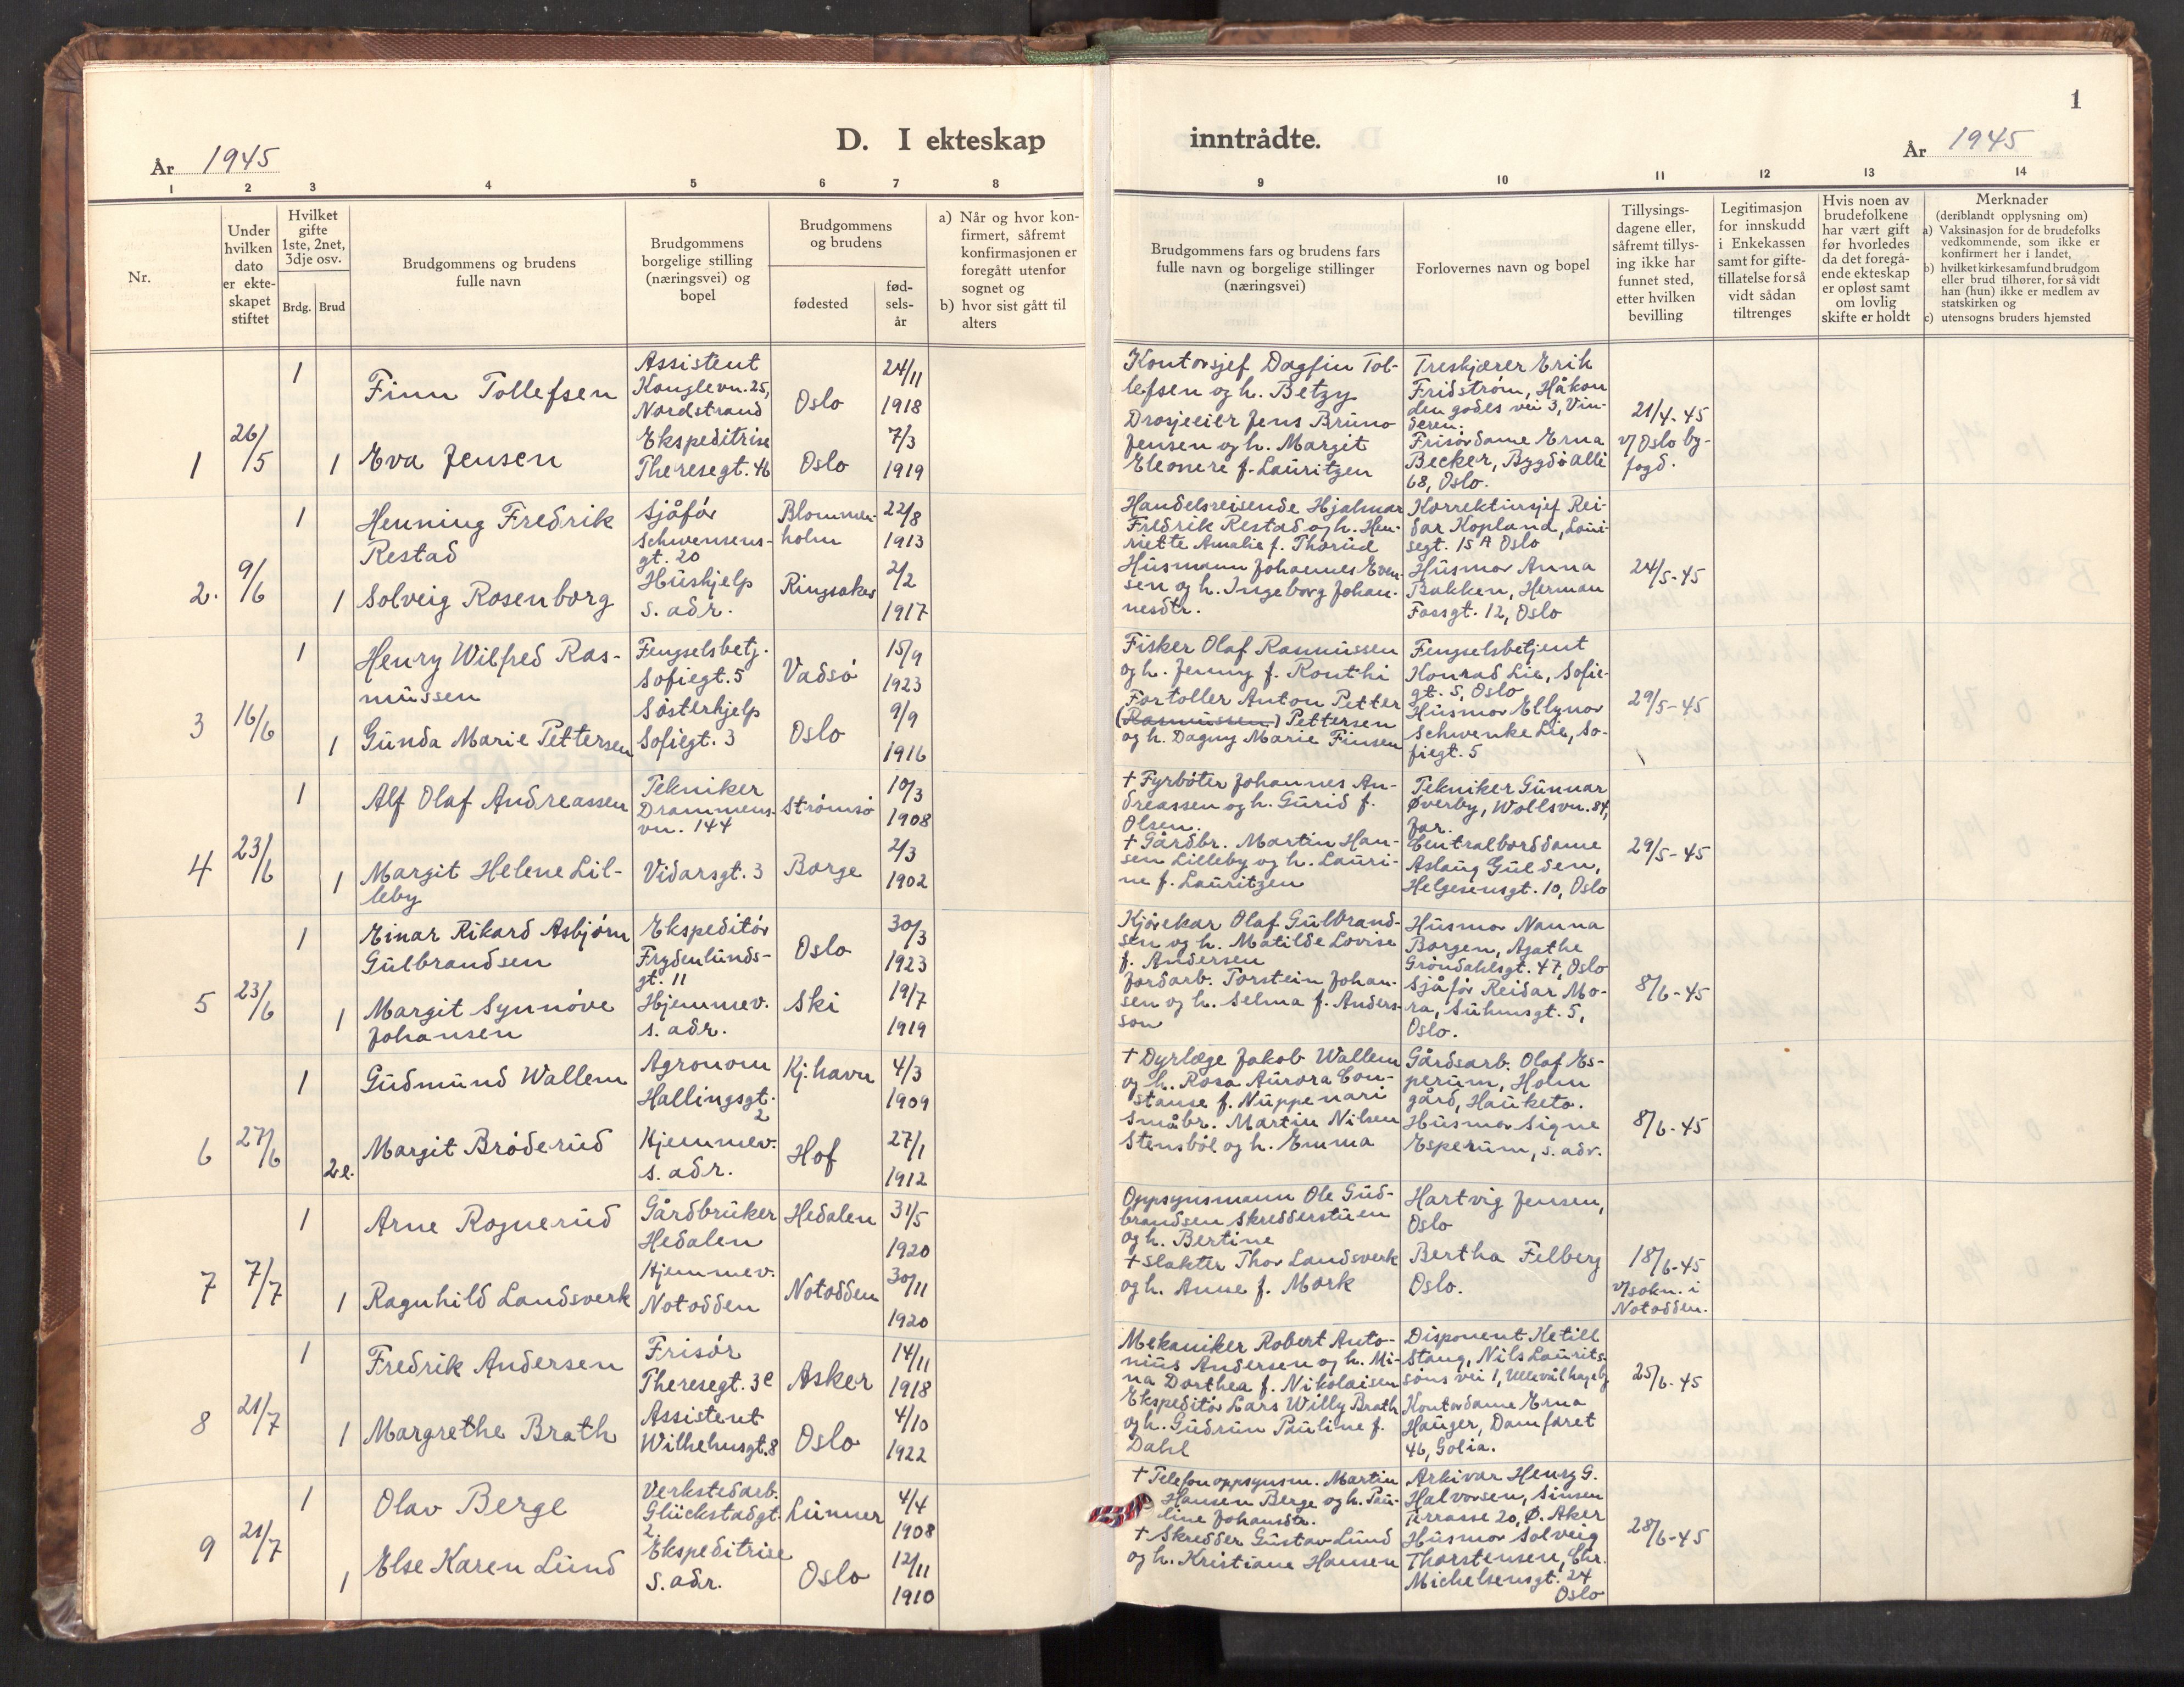 1
D. I ekteskap inntrådte.
År 1945
År 1945
1 2 3 4 5 6 7 8 9 10 11 12 13 14
Nr.
Under
hvilken
dato
er ekte-
skapet
stiftet
Hvilket
gifte
1ste, 2net,
3dje osv.
Brdg. Brud
Brudgommens og brudens
fulle navn
Brudgommens
borgelige stilling
(næringsvei) og
bopel
Brudgommens
og brudens
fødested
fød-
sels-
år
a) Når og hvor kon-
firmert, såfremt
konfirmasjonen er
foregått utenfor
sognet og
b) hvor sist gått til
alters
Brudgommens fars og brudens fars
fulle navn og borgelige stillinger
(næringsvei)
Forlovernes navn og bopel
Tillysings-
dagene eller,
såfremt tillys-
ing ikke har
funnet sted,
etter hvilken
bevilling
Legitimasjon
for innskudd
i Enkekassen
samt for gifte-
tillatelse for så
vidt sådan
tiltrenges
Hvis noen av
brudefolkene
har vært gift
før hvorledes
da det foregå-
ende ekteskap
er opløst samt
om lovlig
skifte er holdt
Merknader
(deriblandt opplysning om)
a) Vaksinasjon for de brudefolks
vedkommende, som ikke er
konfirmert her i landet,
b) hvilket kirkesamfund brudgom
eller brud tilhører, for så vidt
han (hun) ikke er medlem av
statskirken og
c) utensogns bruders hjemsted
1
26/5
1
Finn Tollefsen
Assistent
Konglevn. 25,
Nordstrand
Oslo
24/11
1918
1
Eva Jensen
Ekspeditrise
Theresegt. 46
Oslo
7/3
1919
Kontorsjef Dagfin Tol-
lefsen og h. Betzy
Drosjeeier Jens Bruno
Jensen og h. Margit
Eleonere f. Lauritzen
Treskjærer Erik
Fridstrøm, Håkon
den godes vei 3, Vin-
deren.
Frisørdame Erna
Becker, Bygdø allé
68, Oslo.
21/4-45
v/ Oslo by-
fogd.
2.
9/6
1
Henning Fredrik
Restad
Sjåfør
Schwensens-
gt. 20
Blommen-
holm
22/8
1913
1
Solveig Rosenborg
Hushjelp
s. adr.
Ringsaker
2/2
1917
Handelsreisende Hjalmar
Fredrik Restad og h. Hen-
riette Amalie f. Thorud
Husmann Johannes Even-
sen og h. Ingeborg Johan-
nesdtr.
Korrektursjef Rei-
dar Kopland, Loui-
segt. 15 A Oslo
Husmor Anna
Bakken, Herman
Fossgt. 12, Oslo
24/5-45
3
16/6
1
Henry Wilfred Ras-
mussen
Fengselsbetj.
Sofiegt. 5
Vadsø
15/9
1923
1
Gunda Marie Pettersen
Søsterhjelp
Sofiegt. 3
Oslo
9/9
1916
Fisker Olaf Rasmussen
og h. Jenny f. Ronthi
Fortoller Anton Petter
(Rasmussen) Pettersen
og h. Dagny Marie Finsen
Fengselsbetjent
Konrad Lie, Sofie-
gt. 5, Oslo
Husmor Ellynor
Schwenke Lie, So-
fiegt. 5
29/5-45
4
23/6
1
Alf Olaf Andreassen
Tekniker
Drammens-
vn. 144
Strømsø
10/3
1908
1
Margit Helene Lil-
leby
Vidarsgt. 3
Borge
2/3
1902
† Fyrbøter Johannes An-
dreassen og h. Gurid f.
Olsen.
† Gårdbr. Martin Han-
sen Lilleby og h. Lauri-
ne f. Lauritzen
Tekniker Gunnar
Øverby, Wollsvn. 84,
Jar.
Centralborddame
Aslaug Gulden,
Helgesensgt. 10, Oslo
29/5-45
5
23/6
1
Einar Rikard Asbjørn
Gulbrandsen
Ekspeditør
Frydenlunds-
gt. 11
Oslo
30/3
1923
1
Margit Synnøve
Johansen
Hjemmev.
s. adr.
Ski
19/7
1919
Kjørekar Olaf Gulbrand-
sen og h. Matilde Lovise
f. Andersen
Jordarb. Torstein Johan-
sen og h. Selma f. Anders-
son
Husmor Nanna
Borgen, Agathe
Grøndahlsgt. 47, Oslo
Sjåfør Reidar Mo-
ra, Suhmsgt. 5,
Oslo.
8/6-45
6
27/6
1
Gudmund Wallem
Agronom
Hallingsgt.
2
Kj.havn
4/3
1909
2 e.
Margit Brøderud
Hjemmev.
s. adr.
Hof
27/1
1912
† Dyrlæge Jakob Wallem
og h. Rosa Aurora Con-
stanse f. Nuppenari
Småbr. Martin Nilsen
Stensbøl og h. Emma
Gårdsarb. Olaf Es-
perum, Holm
gård, Hauketo.
Husmor Signe
Esperum, s. adr.
8/6-45
7
7/7
1
Arne Rognerud
Gårdbruker
Hedalen
Hedalen
31/5
1920
1
Ragnhild Landsverk
Hjemmev.
Notodden
Notodden
30/11
1920
Oppsynsmann Ole Gud-
brandsen Skredderstuen
og h. Bertine
† Slakter Thor Landsverk
og h. Anne f. Mork
Hartvig Jensen,
Oslo
Bertha Felberg
Oslo.
18/6-45
v/sokn. i
Notodden.
8
21/7
1
Fredrik Andersen
Frisør
Theresegt. 3c
Asker
14/11
1918
1
Margrethe Brath
Assistent
Wilhelmsgt. 8
Oslo
4/10
1922
Mekaniker Robert Anto-
nius Andersen og h. Mi-
na Dorthea f. Nikolaisen
Ekspeditør Lars Willy Brath
og h. Gudrun Pauline f.
Dahl
Disponent Ketill
Stang, Nils Laurits-
søns vei 1, Ullevål hageby
Kontordame Erna
Hauger, Damfaret
46, Golia.
25/6-45
9
21/7
1
Olav Berge
Verkstedarb.
Glückstadgt.
2
Lunner
4/4
1908
1
Else Karen Lund
Ekspeditrise
S. adr.
Oslo
12/11
1910
† Telefonoppsynsm. Martin
Hansen Berge og h. Pau-
line Johansdtr.
† Skredder Gustav Lund
og h. Kristiane Hansen
Arkivar Henry G.
Halvorsen, Sinsen
Terrasse 20, Ø. Aker
Husmor Solveig
Thorstensen, Chr.
Michelsensgt. 24
Oslo
28/6-45